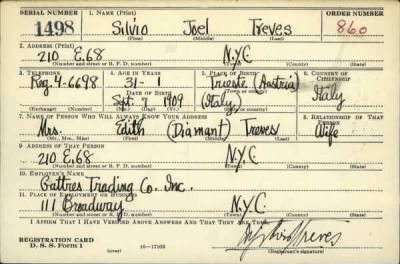 SERIAL NUMBER 1. NAME (Print) ORDER NUMBER
1498 Silvio Joel Treves 860
(First) (Middle) (Last)
2. ADDRESS (Print)
210 E. 68 N.Y.C
(Number and street or R. F. D. number) (Town) (County) (State)
3. TELEPHONE 4. AGE IN YEARS 5. PLACE OF BIRTH 6. COUNTRY OF CITIZENSHIP
Reg. 4-6698 31-1 Trieste (Austria)
DATE OF BIRTH
Sept. 7 1909 (Italy) Italy
(Exchange) (Number) (Mo.) (Day) (Yr.) (State or country)
7. NAME OF PERSON WHO WILL ALWAYS KNOW YOUR ADDRESS 8. RELATIONSHIP OF THAT PERSON
Mrs. Edith (Diamant) Treves Wife
(Mr., Mrs., Miss) (First) (Middle) (Last)
9. ADDRESS OF THAT PERSON
210 E. 68 N.Y.C
(Number and street or R. F. D. number) (Town) (County) (State)
10. EMPLOYER'S NAME
Trading Co. Inc.
11. PLACE OF EMPLOYMENT OR BUSINESS
111 Broadway N.Y.C
(Number and street or R. F. D. number) (Town) (County) (State)
I AFFIRM THAT I HAVE VERIFIED ABOVE ANSWERS AND THAT THEY ARE TRUE.
REGISTRATION CARD
D. S. S. Form 1 (over) 16-17105 Treves
(Registrant's signature)